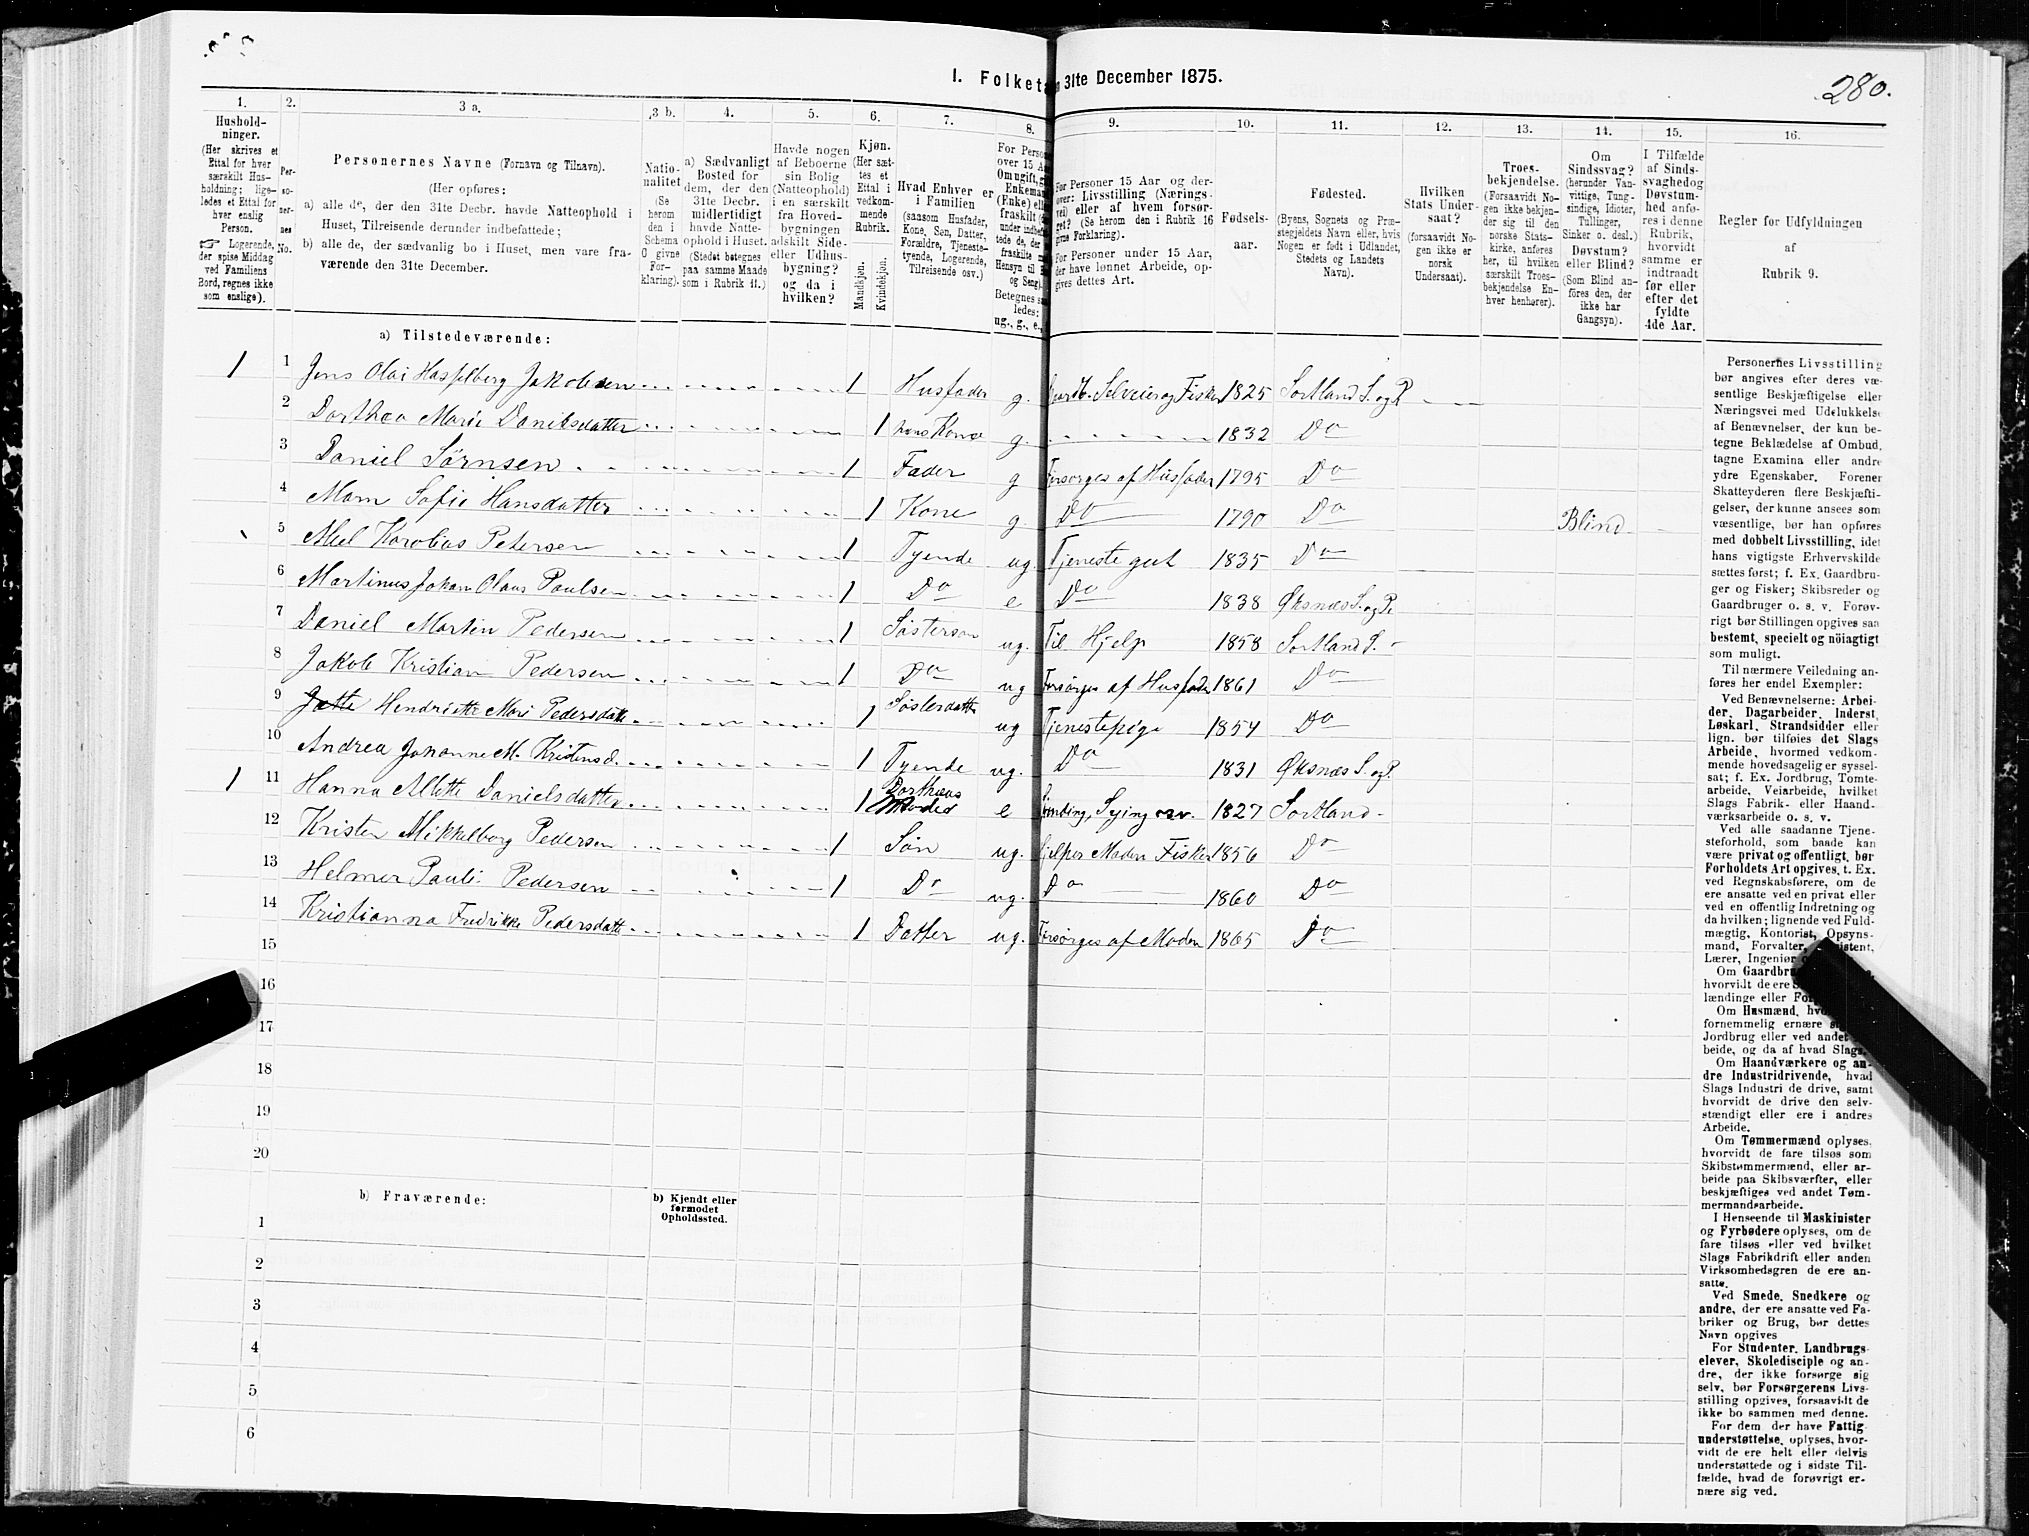 280.
I. Folketæ
n 31te December 1875.
1.
2.
3 a.
3 b.
4.
5.
6.
7.
8.
9.
10.
11.
12.
13.
14.
15.
16.
Hushold-
ninger.
(Her skrives et
Ettal for hver
særskilt Hus-
holdning; lige-
ledes et Ettal for
hver enslig
Person.
☞ Logerende,
der spise Middag
ved Familiens
Bord, regnes ikke
som enslige).
Per-
so-
ner-
nes
No.
Personernes Navne (Fornavn og Tilnavn).
(Her opføres:
a) alle de, der den 31te Decbr. havde Natteophold i
Huset, Tilreisende derunder indbefattede;
b) alle de, der sædvanlig bo i Huset, men vare fra-
værende den 31te December.
Natio-
nalitet
(Se
herom
den i
Schema
O givne
For-
klaring).
a) Sædvanligt
Bosted for
dem, der den
31te Decbr.
midlertidigt
havde Natte-
ophold i Huset.
(Stedet betegnes
paa samme Maade
som i Rubrik 11.)
Havde nogen
af Beboerne
sin Bolig
(Natteophold)
i en særskilt
fra Hoved-
bygningen
adskilt Side-
eller Udhus-
bygning?
og da i
hvilken?
Kjøn.
(Her sæt-
tes et
Ettal i
vedkom-
mende
Rubrik.
Mandkjøn.
Kvindekjøn.
Hvad Enhver er
i Familien
(saasom Husfader,
Kone, Søn, Datter,
Forældre, Tjeneste-
tyende, Logerende,
Tilreisende osv.)
For Perso
over 15 A
Om ugift, g
Enkema
(Enke) elle
fraskilt (
under indbe
tede de, de
fraskilte
Hensyn til
og Seng).
Betegnes s
ledes:
ug., g., e.,
For Personer 15 Aar og der-
over: Livsstilling (Nærings-
vei) eller af hvem forsør-
get? (Se herom den i Rubrik 16
givne Forklaring).
For Personer under 15 Aar,
der have lønnet Arbeide, op-
gives dettes Art.
Fødsels-
aar.
Fødested.
(Byens, Sognets og Præ-
stegjeldets Navn eller, hvis
Nogen er født i Udlandet,
Stedets og Landets
Navn).
Hvilken
Stats Under-
saat?
(forsaavidt No-
gen ikke er
norsk
Undersaat).
Troes-
bekjendelse.
(Forsaavidt No-
gen ikke bekjen-
der sig til den
norske Stats-
kirke, anføres
her, til hvilken
særskilt Troes-
bekjendelse En-
hver henhører).
Om
Sindssvag?
(herunder Van-
vittige, Tung-
sindige, Idioter,
Tullinger,
Sinker o. desl.)
Døvstum?
eller Blind?
(Som Blind an-
føres den, der
ikke har
Gangsyn).
I Tilfælde
af Sinds-
svaghed og
Døvstum-
hed anfø-
res i denne
Rubrik,
hvorvidt
samme er
indtraadt
før eller
efter det
fyldte
4de Aar.
Regler for Udfyldningen
af
Rubrik 9.
a) Tilstedeværende:
1 1 Jens Olai Hasselberg Jakobsen 1 Husfader g. Gaardb. Selveier og Fisker 1825 Sortland S. og P
2 Dorthea Marie Danielsdatter 1 hans Kone g 1832 Do
3 Daniel Sørnsen 1 Fader g Forsørges af Husfader 1795 Do
4 Marn Sofie Hansdatter 1 Kone g. Do 1790 Do Blind
5 Abel Karolius Petersen 1 Tyende ug. Tjeneste gut 1835 Do
6 Martinus Johan Olaus Paulsen 1 Do e Do 1838 Øksnæs S. og P.
7 Daniel Martin Pedersen 1 Søsterson ug. Til Hjelp 1858 Sortland S.
8 Jakob Kristian Pedersen 1 Do ug Forsørges af Husfader 1861 Do
9 Jette Hendriette Mari Pedersdatte 1 Søsterdatte ug Tjenestepige 1854 Do
10 Andrea Johanne M. Kristensd. 1 Tyende ug. Do 1831 Øksnæs S. og P.
1 11 Hanna Alette Danielsdatter 1 Dortheas e Spinding, Sying osv. 1827 Sortland
12 Kristen Mikkelborg Pedersen 1 Søn ug. Hjelper Moderen Fisker 1856 Do
13 Helmer Pauli Pedersen 1 Do ug. Do 1860 Do
14 Kristianna Fredrikke Pedersdatt 1 Datter ug. Forsørges af Moderen 1865 Do
15
16
17
18
19
20
b) Fraværende:
b) Kjendt eller
formodet
Opholdssted.
1
2
3
4
5
6
Personernes Livsstilling
bør angives efter deres væ-
sentlige Beskjæftigelse eller
Næringsvei med Udelukkelse
af Benævnelser, der kun be-
tegne Beklædelse af Ombud,
tagne Examina eller andre
ydre Egenskaber. Forener
Skatteyderen flere Beskjæfti-
gelser, der kunne ansees som
væsentlige, bør han opføres
med dobbelt Livsstilling, idet
hans vigtigste Erhvervskilde
sættes først; f. Ex. Gaardbru-
ger og Fisker; Skibsreder og
Gaardbruger o. s. v. Forøv-
rigt bør Stillingen opgives saa
bestemt, specielt og nøiagtigt
som muligt.
Til nærmere Veiledning an-
føres her endel Exempler:
Ved Benævnelserne: Arbei-
der, Dagarbeider, Inderst,
Løskarl, Strandsidder eller
lign. bør tilføies det Slags
Arbeide, hvormed vedkom-
mende hovedsagelig er syssel-
sat; f. Ex. Jordbrug, Tomte-
arbeide, Veiarbeide, hvilket
Slags Fabrik- eller Haand-
værksarbeide o. s. v.
Ved alle saadanne Tjene-
steforhold, som baade kan
være privat og offentligt, bør
Forholdets Art opgives, t. Ex.
ved Regnskabsførere, om de
ere ansatte ved en privat eller
ved en offentlig Indretning og
da hvilken; lignende ved Fuld-
mægtig, Kontorist, Opsyns-
mand, Forvalter, Assistent,
Lærer, Ingeniør
Om Gaardbru
hvorvidt de ere S
lændinge eller For
Om Husmænd, hv
fornemmelig ernære sig
Jordbrug eller ved andet
beide, og da af hvad Slags.
Om Haandværkere og an-
dre Industridrivende, hvad
Slags Industri de drive, samt
hvorvidt de drive den selv-
stændigt eller ere i andres
Arbeide.
Om Tømmermænd oplyses,
hvorvidt de fare tilsøs som
Skibstømmermænd, eller ar-
beide paa Skibsværfter, eller
beskjæftiges ved andet Tøm-
mermandsarbeide.
I Henseende til Maskinister
og Fyrbødere oplyses, om de
fare tilsøs eller ved hvilket
Slags Fabrikdrift eller anden
Virksomhedsgren de ere an-
satte.
Ved Smede, Snedkere og
andre, der ere ansatte ved Fa-
briker og Brug, bør dettes
Navn opgives
For Studenter, Landbrugs-
elever, Skoledisciple og an-
dre, der ikke forsørge sig
selv, bør Forsørgerens Livs-
stilling opgives, forsaavidt de
ikke bo sammen med denne.
For dem, der have Fattig-
understøttelse, oplyses, hvor-
vidt de ere helt eller delvis
understøttede og i sidste Til-
fælde, hvad de forøvrigt er-
nære sig ved.